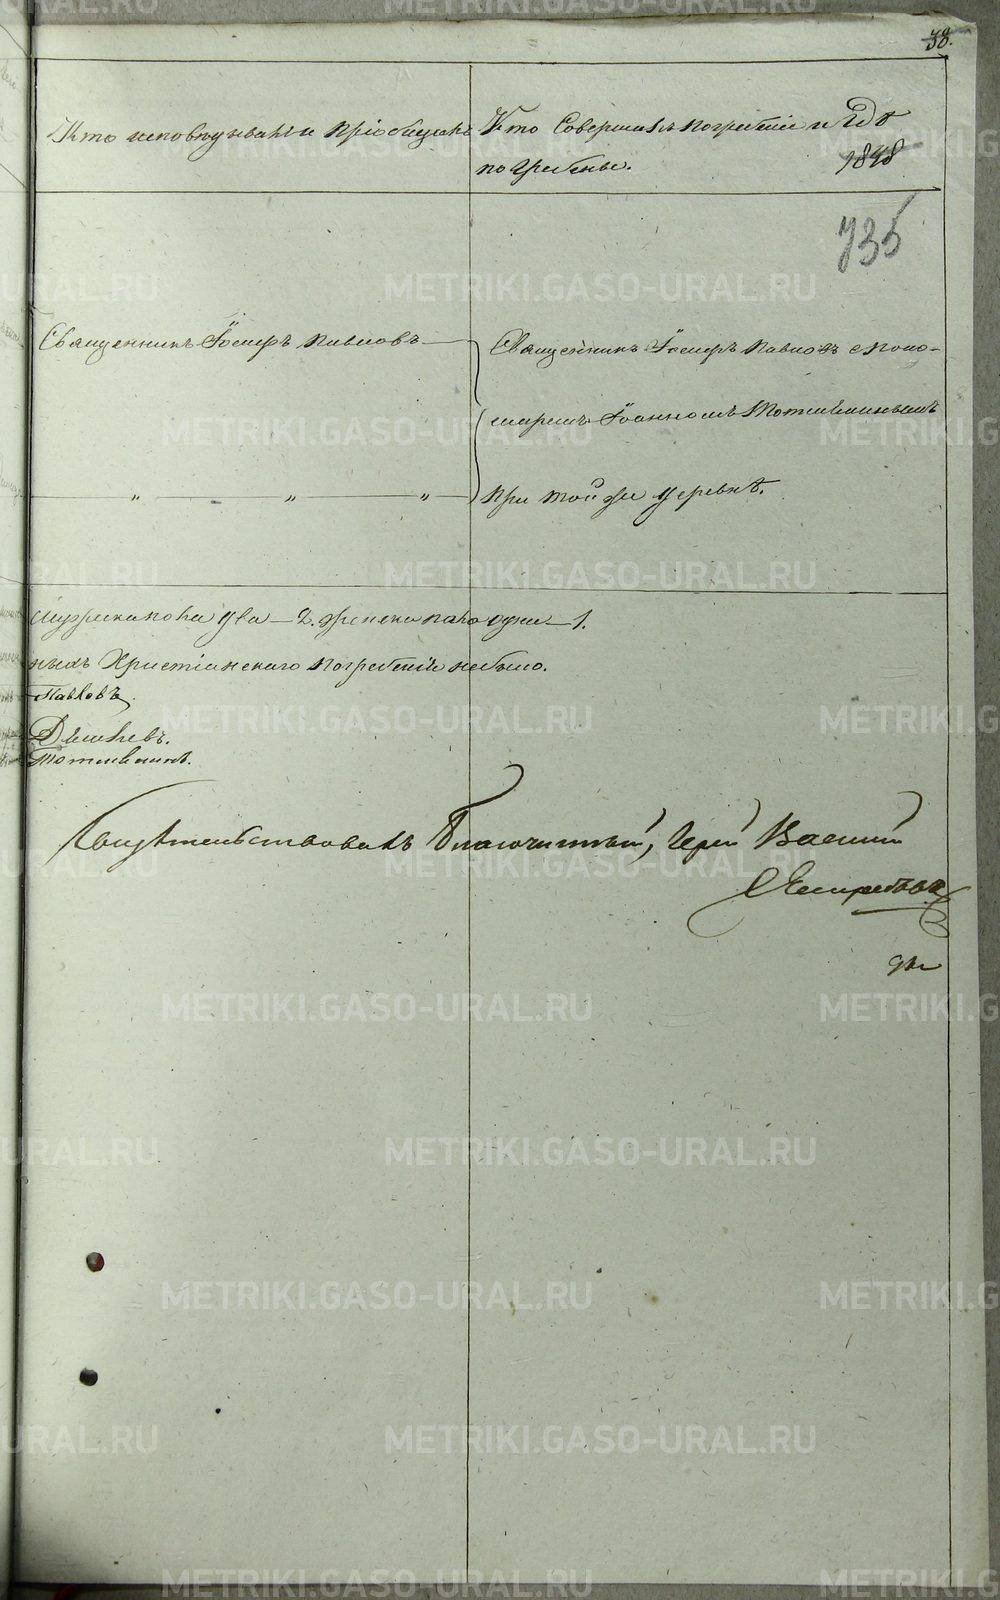 38.
Кто исповѣдывалъ и пріобщалъ
Кто Совершалъ погребеніе и Гдѣ
погребены.
1848
735
Священникъ Іосифъ Павловъ
Священникъ Іосифъ Павловъ с поно-
маремъ Іоанномъ Тотмѣнинымъ
" " "
При той же деревнѣ.
мужеска пола два — 2. женска пола одна — 1.
ныхъ Христіанскаго погребенія небыло.
Павловъ.
Тотмѣнинъ.
Свидѣтельствовалъ Благочинный, Іерей Василій
METRIKI.GASO-URAL.RU